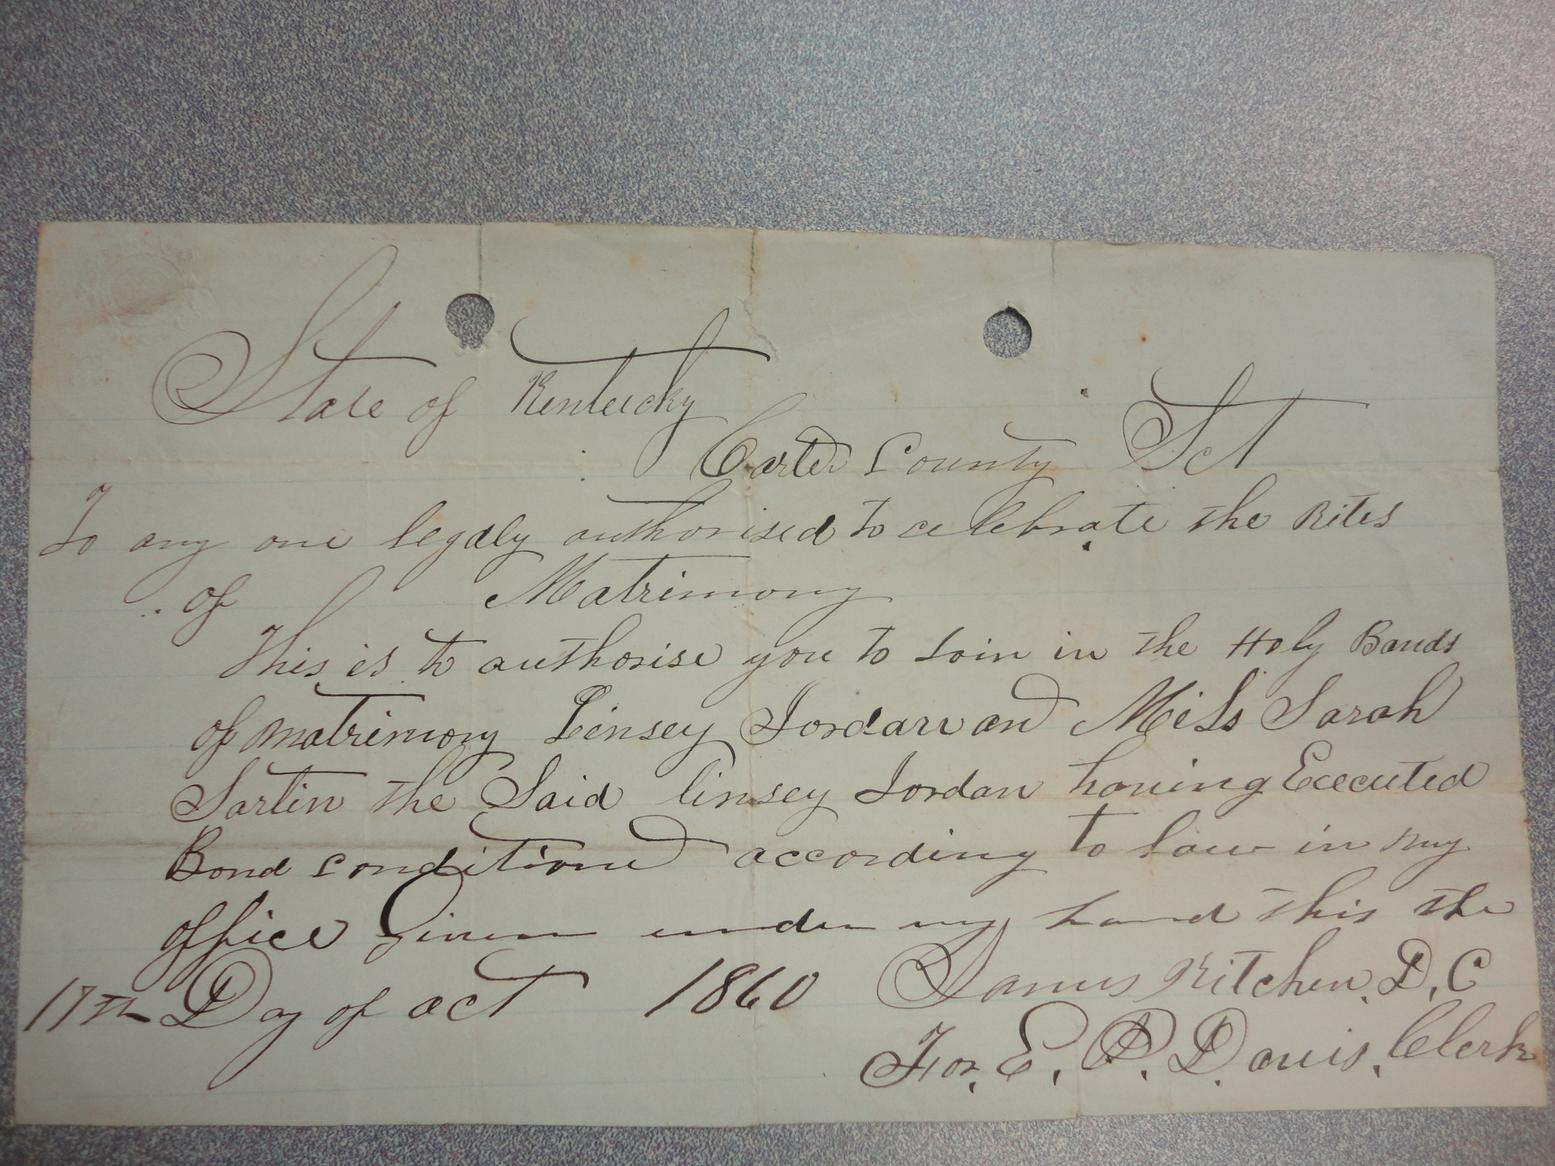 State of Kentucky
Carter County Sct
To any one legaly authorised to celebrate the Rites
of Matrimony
This is to authorise you to Join in the Holy Bands
of matrimony Linsey Jordan an Miss Sarah
Sartin the Said linsey Jordan having Executed
Bond condition according to law in my
office Given under my hand this the
17th Day of oct 1860 James Kitchen, D, C
For, E, P, Davis, Clerk